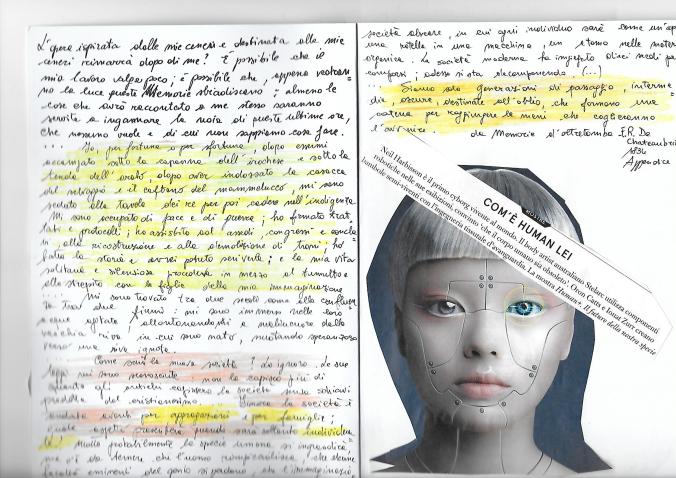 L'opera ispirata dalle mie ceneri e destinata alle mie
ceneri rimarrà dopo di me? È possibile che il
mio lavoro valga poco; è possibile che, appena vedran-
no la luce queste Memorie sbiadiscano; almeno le
cose che avrò raccontato a me stesso saranno
servite a ingannare la noia di queste ultime ore,
che nessuno vuole e di cui non sappiamo cosa fare.
... Io, per fortuna o per sfortuna, dopo essermi
accampato sotto la capanna dell'irochese e sotto la
tenda dell'arabo, dopo aver indossato la casacca
del selvaggio e il caffetano del mammalucco, mi sono
seduto alla tavola dei re per poi cadere nell'indigenza.
Mi sono occupato di pace e di guerra; ho firmato trat
tati e protocolli; ho assistito ad assedi, congressi e concla
vi, alla ricostruzione e alla demolizione di troni; ho
fatto la storia e avrei potuto scriverla; e la mia vita
solitaria e silenziosa procedeva in mezzo al tumulto e
allo strepito con le figlie della mia immaginazione
... Mi sono trovato tra due secoli come alla confluen
za tra due fiumi: mi sono immerso nelle loro
acque agitate allontanandomi a malincuore dalla
vecchia riva in cui sono nato, nuotando speranzoso
verso una riva ignota.
Come sarà la nuova società? Lo ignoro. Le sue
leggi mi sono sconosciute: non la capisco più di
quanto gli antichi capissero la società senza schiavi
prodotta dal cristianesimo. la società è
andata avanti per aggregazioni e per famiglie;
quale aspetto presenterà quando sarà soltanto individua
le? Molto probabilmente la specie umana si ingrandirà,
ma c'è da temere che l'uomo rimpicciolisca, che alcune
facoltà eminenti del genio si perdano, che l'immaginazio
società alveare, in cui ogni individuo sarà come un'ape
una rotella in una macchina, un atomo nella mater
organica. La società moderna ha impiegato dieci secoli per
comporsi; adesso si sta decomponendo. (...)
Siamo delle generazioni di passaggio, interme
die, oscure, destinate all'oblio, che formano una
catena per raggiungere le mani che coglieranno
l'avvenire.
da Memorie d'oltretomba F.R. De
Chateaubria
1834
Appendice
MOSTRE
COM'È HUMAN LEI
Neil Harbisson è il primo cyborg vivente al mondo. Il body artist australiano Stelarc utilizza componenti
robotiche nelle sue esibizioni, convinto che il corpo umano sia obsoleto. Oron Catts e Ionat Zurr creano
bambole semi-viventi con l'ingegneria tissutale d'avanguardia. La mostra Human+. Il futuro della nostra specie